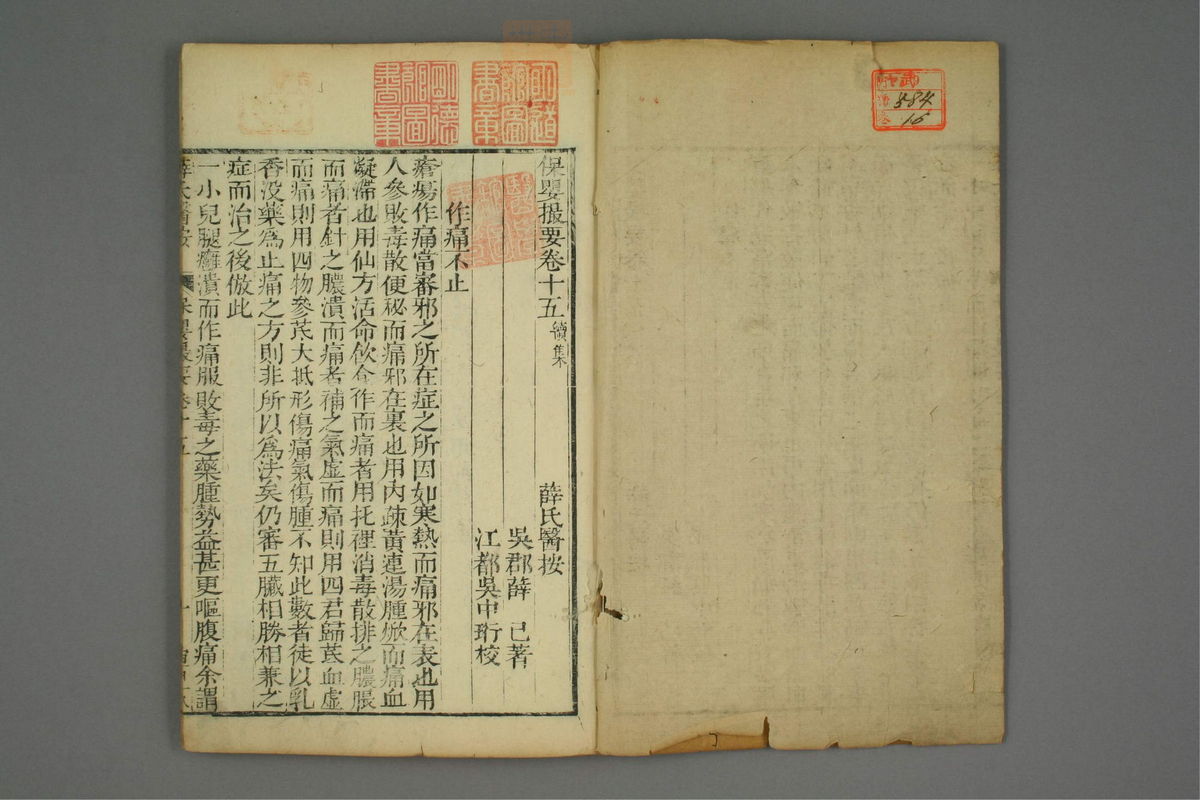 884
16
保嬰撮要卷十五 續集 薛氏醫按
吳郡薛 已著
江都吳中珩校
作痛不止
瘡瘍作痛當審邪之所在症之所因如寒熱而痛邪在表也用
人參敗毒散便秘而痛邪在裏也用內疎黃連湯腫焮而痛血
凝滯也用仙方活命飲作而痛者用托裡消毒散排之膿脹
而痛者針之膿潰而痛者補之氣虛而痛則用四君歸芪血虛
而痛則用四物參芪大抵形傷痛氣傷腫不知此數者徒以乳
香没藥爲止痛之方則非所以爲法矣仍審五臟相勝相兼之
症而治之後倣此
一小兒腿癰潰而作痛服敗毒之藥腫勢益甚更嘔腹痛余謂
薛氏醫按 保嬰撮要卷十五 一